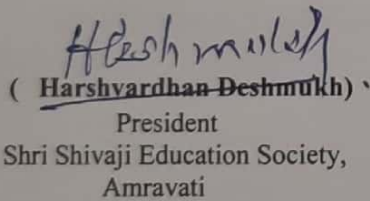 HDeshmukh
( Harshvardhan Deshmukh)
President
Shri Shivaji Education Society,
Amravati